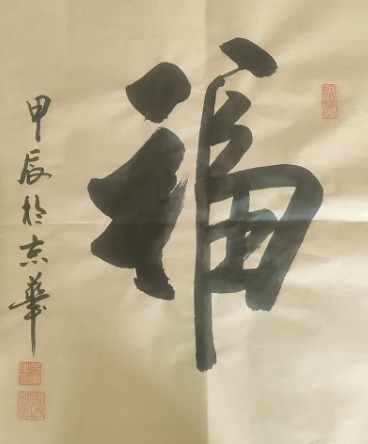 福
甲辰於京華